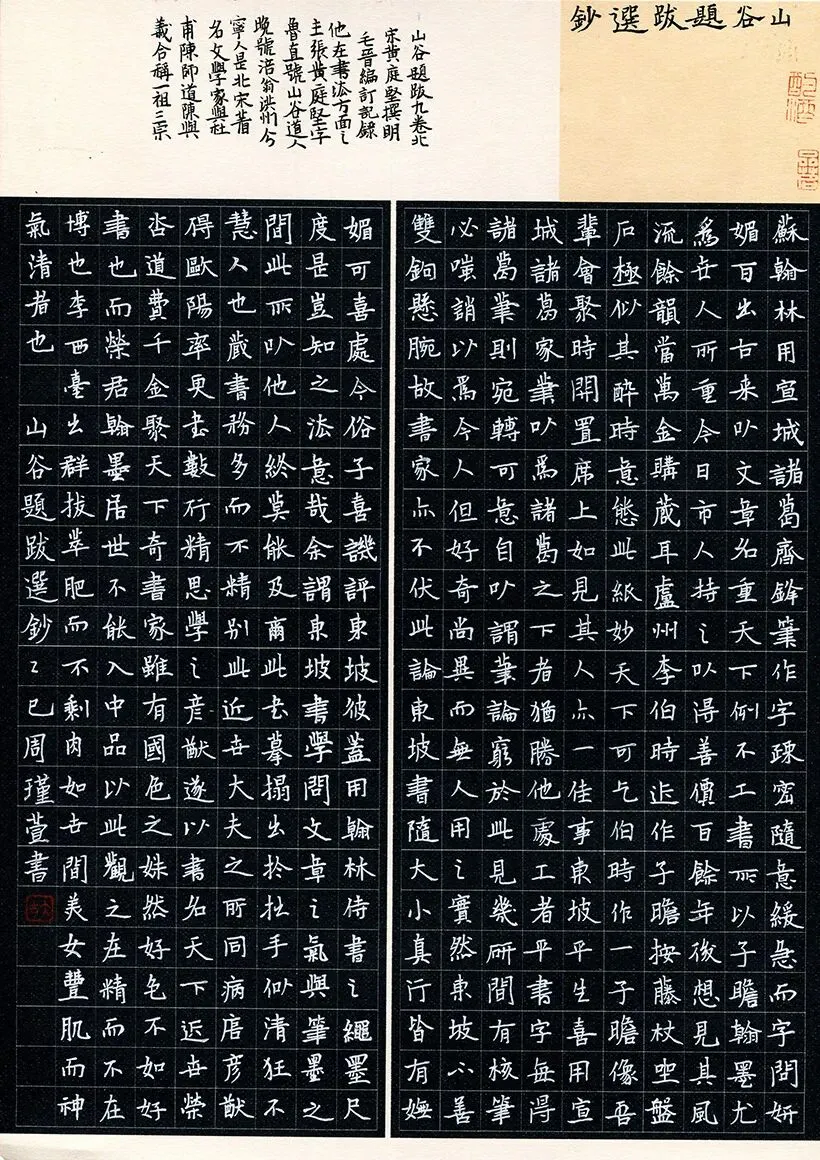 山谷題跋選鈔
山谷題跋九卷北
宋黄庭堅撰明
毛晉編訂記錄
他在書法方面之
主張黄庭堅字
魯直號山谷道人
晚號涪翁洪州今
寧人是北宋著
名文學家與杜
甫陳師道陳與
義合稱一祖三宗
蘇翰林用宣城諸葛齊鋒筆作字疎密隨意緩急而字間妍
媚百出古来以文章名重天下例不工書所以子瞻翰墨尤
為世人所重今日市人持之以得善價百餘年後想見其風
流餘韻當萬金購蔵耳盧州李伯時近作子瞻按藤杖坐盤
石極似其醉時意態此紙妙天下可乞伯時作一子瞻像吾
輩會聚時開置席上如見其人亦一佳事東坡平生喜用宣
城諸葛家筆以為諸葛之下者猶勝他處工者平書字每得
諸葛筆則宛轉可意自以謂筆論窮於此見幾研間有核筆
必嗤誚以為今人但好奇尚異而無人用之實然東坡不善
雙鉤懸腕故書家亦不伏此論東坡書隨大小真行皆有嫵
媚可喜處今俗子喜譏評東坡彼蓋用翰林侍書之繩墨尺
度是豈知之法意哉余謂東坡書學問文章之氣與筆墨之
間此所以他人終莫能及爾此書摹搨出於拙手似清狂不
慧人也藏書務多而不精别此近世大夫之所同病唐彦猷
碍歐陽率更書數行精思學之彦猷遂以書名天下近世榮
咨道費千金聚天下奇書家雖有國色之姝然好色不如好
書也而榮君翰墨居世不能入中品以此觀之在精而不在
博也李西臺出群拔萃肥而不剩肉如世間美女豐肌而神
氣清者也 山谷題跋選鈔乙巳周瑾萱書